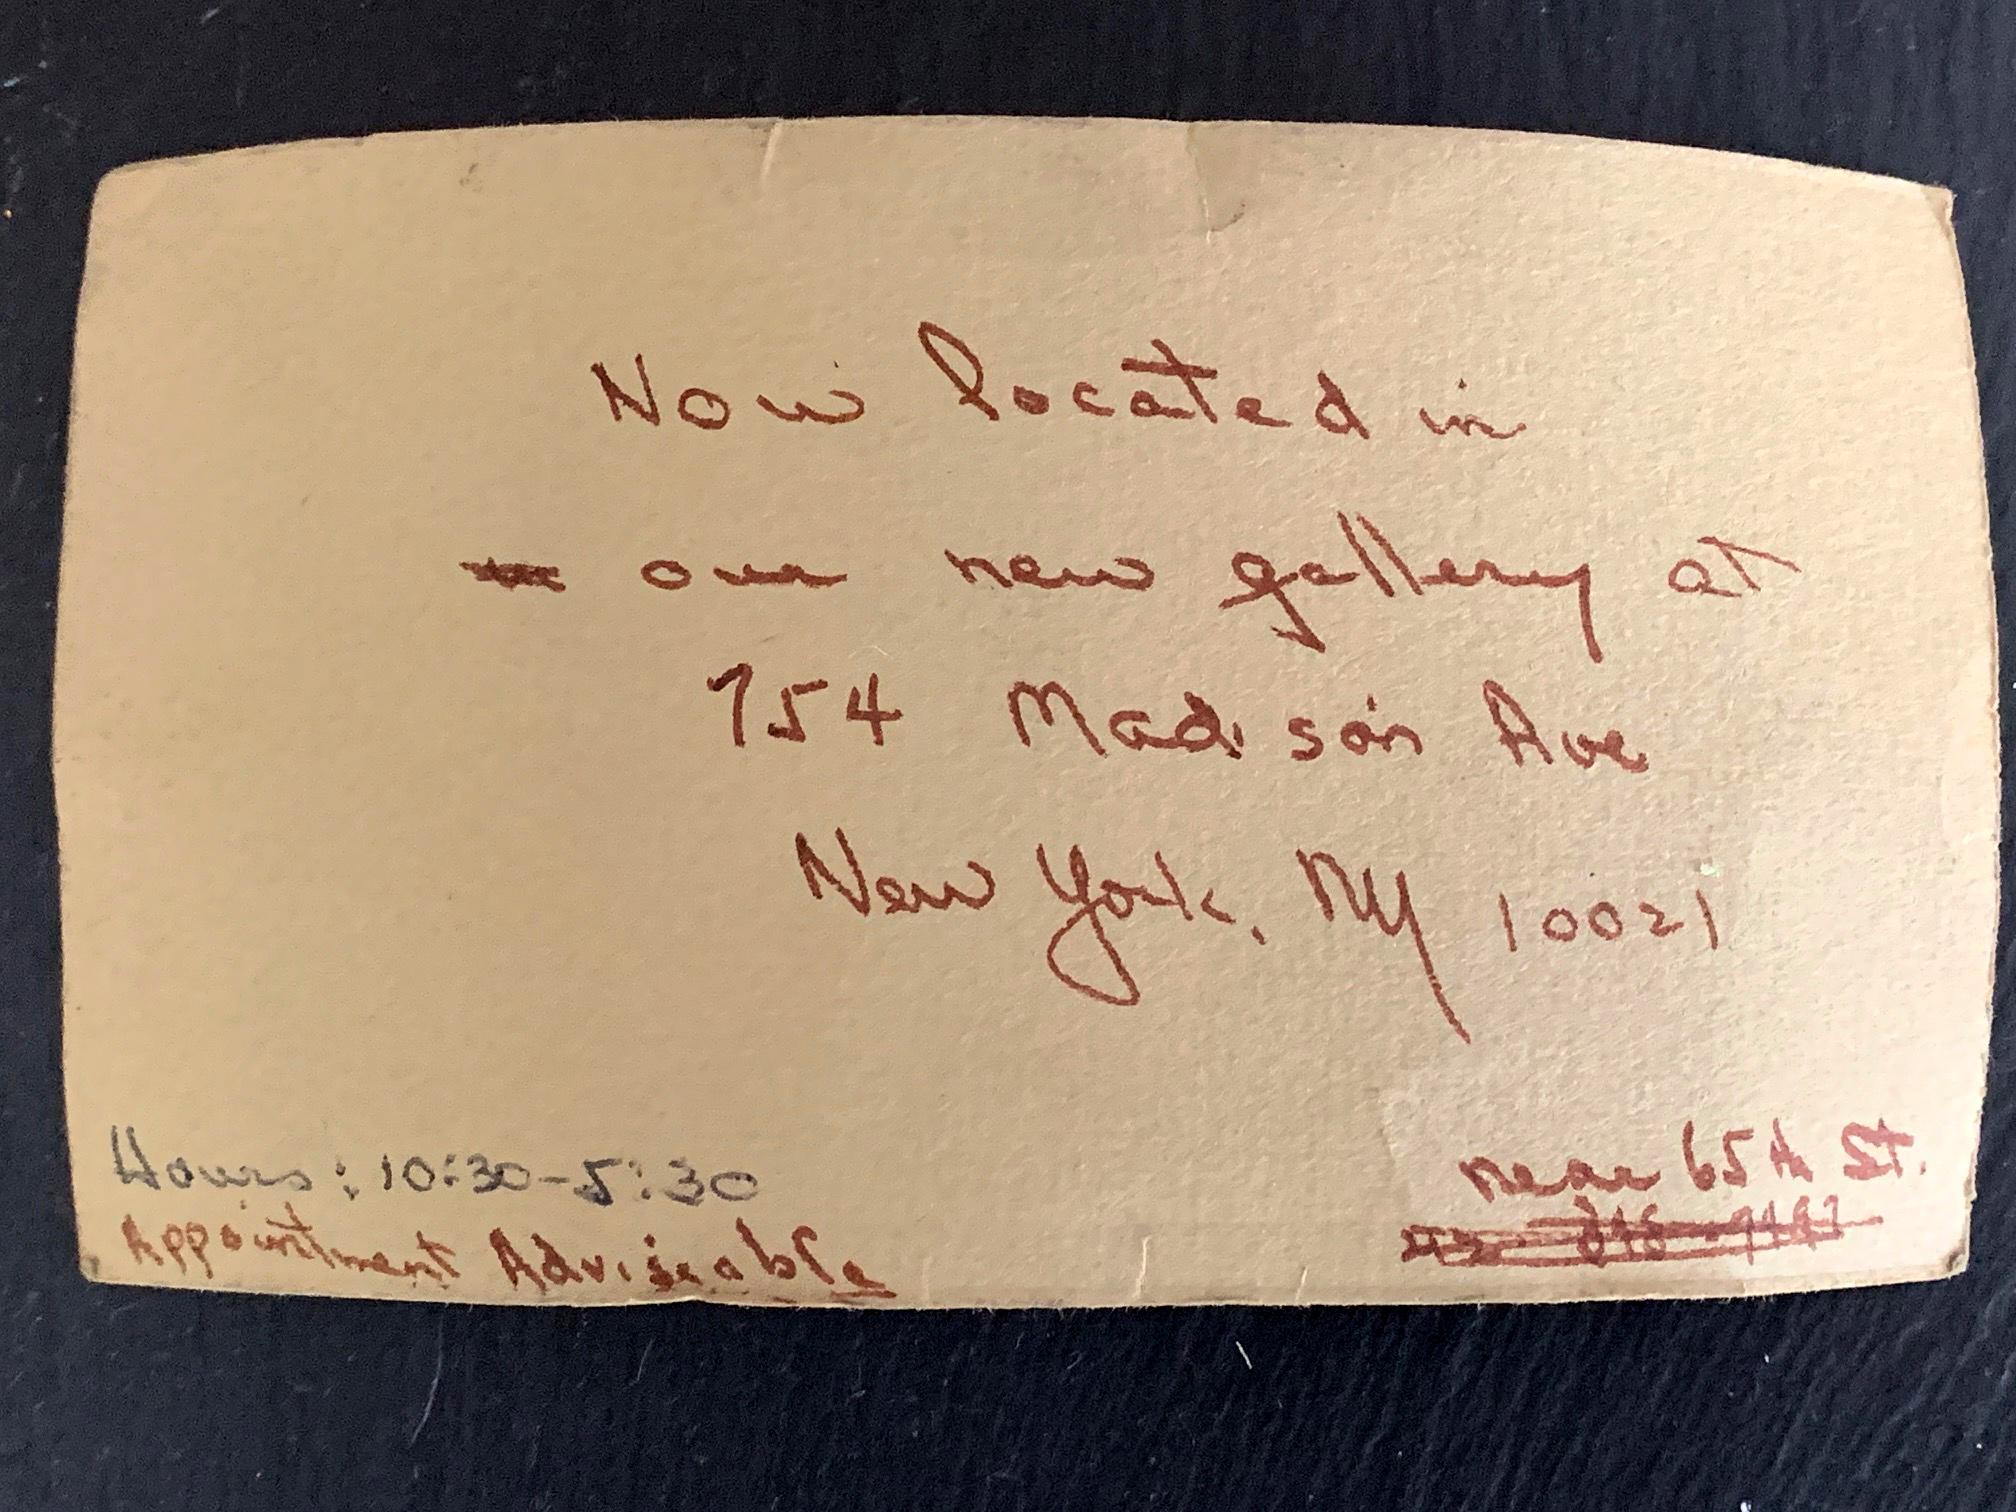 Now located in
our new gallery at
754 Madison Ave
New York, NY 10021
Hours: 10:30-5:30
Appointment Adviseable
near 65th St.